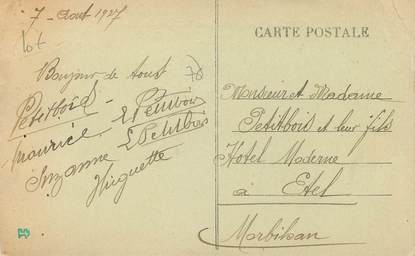 7 - Aout 1927
lot
CARTE POSTALE
Bonjour de tous
78
Petitbois
Maurice E Petitbois
Suzanne E Petitbois
Huguette
Monsieur et Madame
Petitbois et leur fils
Hotel Moderne
à Etel
Morbihan